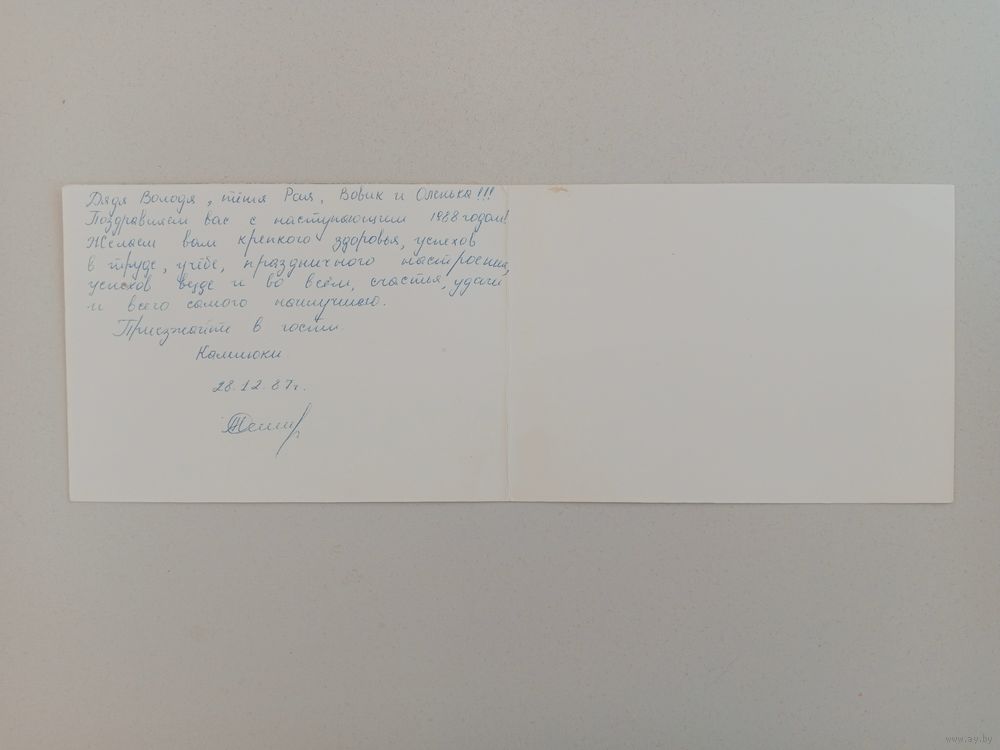 Дядя Володя, тётя Рая, Вовик и Оленька!!!
Поздравляем вас с наступающим 1988 годом!
Желаем вам крепкого здоровья, успехов
в труде, учёбе, праздничного настроения,
успехов везде и во всём, счастья, удачи
и всего самого наилучшего.
Приезжайте в гости
28.12.87г.
www.ay.by